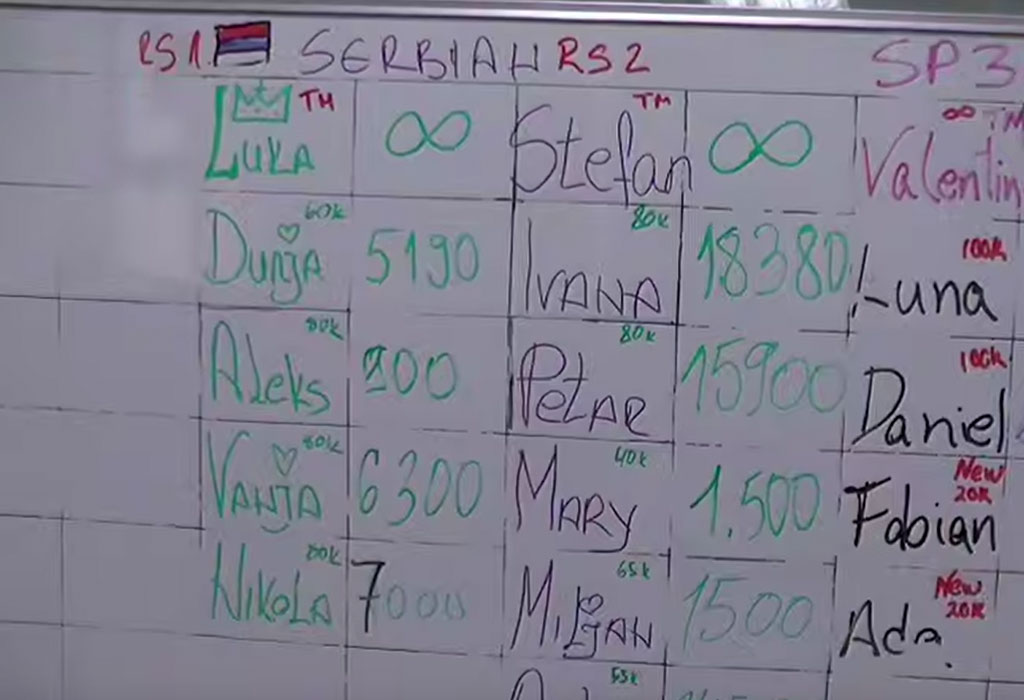 RS1 SERBIAN RS2 SP3
TM TM ∞ TM
LUKA ∞ Stefan ∞ Valentin
60k 80k 100k
DUNJA 5190 IVANA 18380 Luna
80k 80k 100k
Aleks 200 PETAR 15900 Daniel
80k 40k New 20K
VANJA 6300 MARY 1.500 Fabian
80k 65k New 20K
NIKOLA 7000 MILJAN 1500 Ada
55k